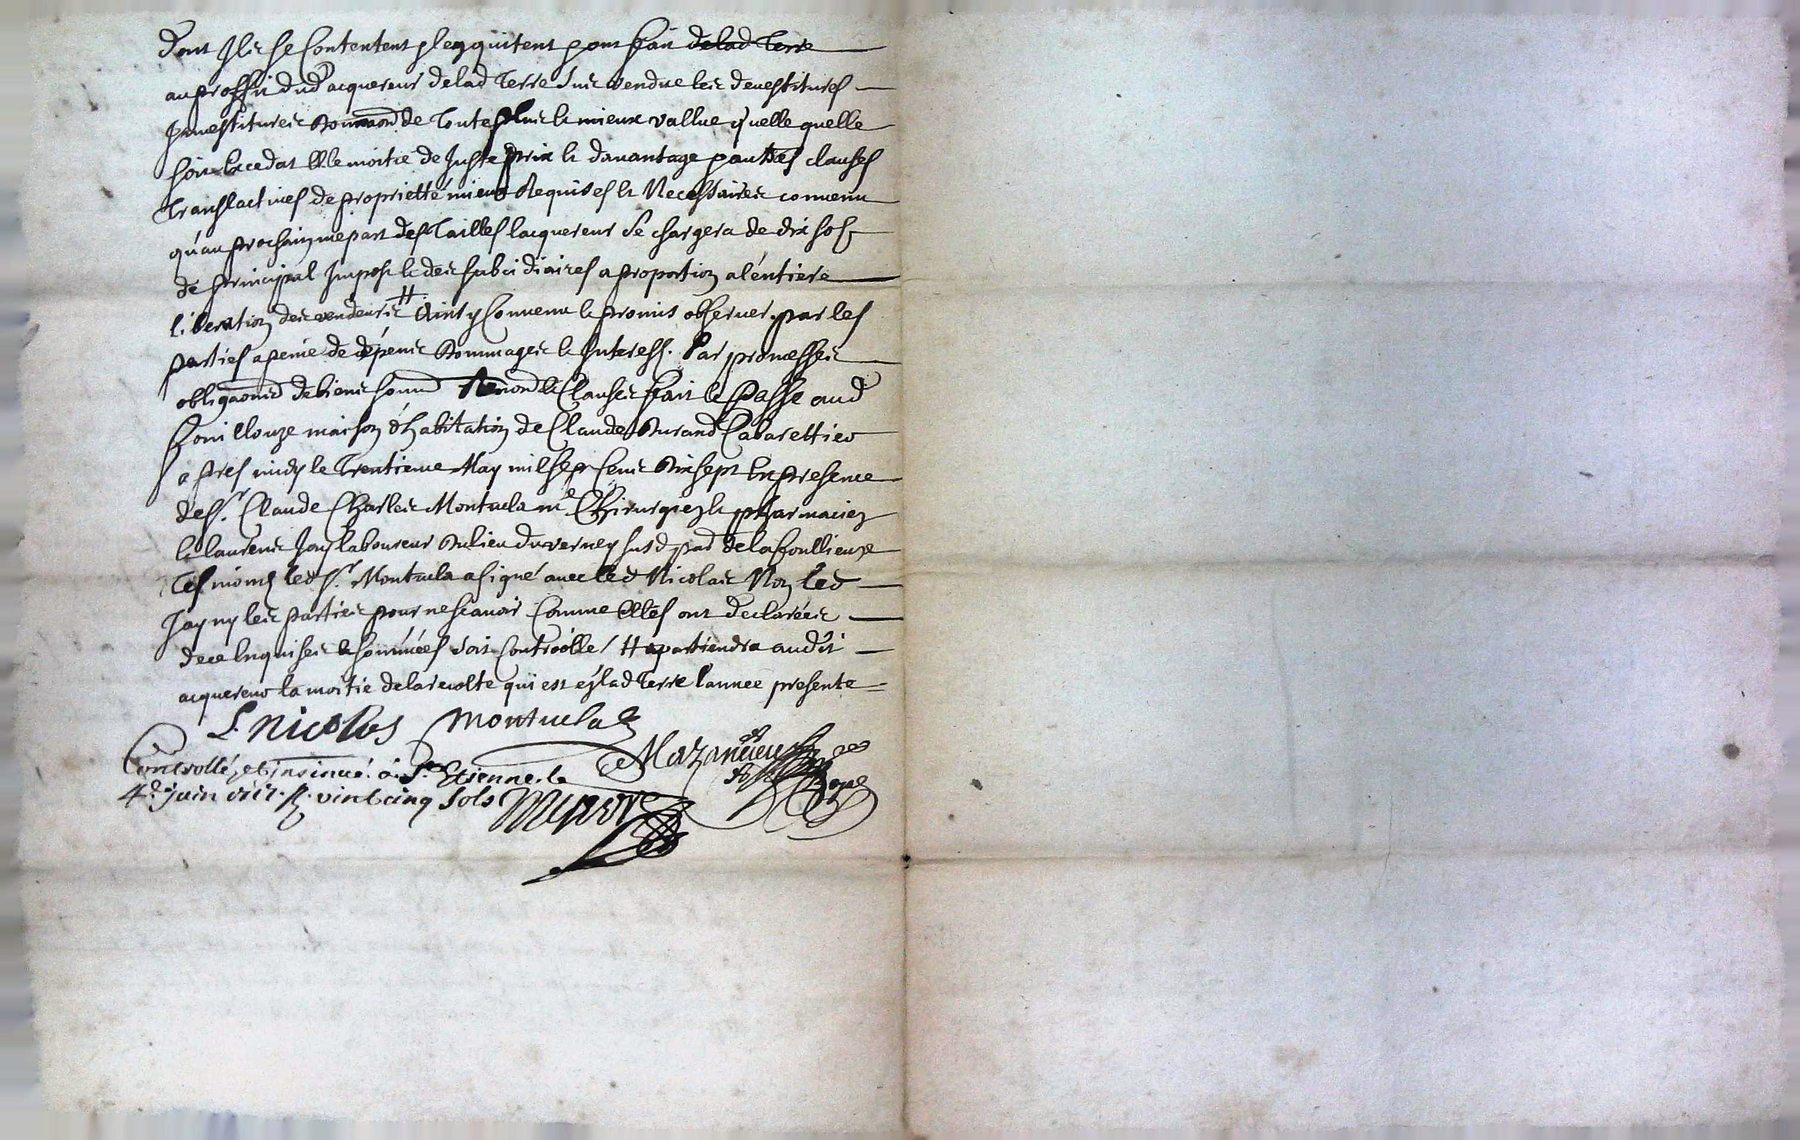 dont Ils se Contentent et en quitent pour fait delad Terre
au proffit dud acquereur delad Terre sus vendue les devestitures
Jnvestitures de toute plus et mieux vallue quelle quelle
soit Excedat Elle moitie de Juste prix et davantage clauses
translactives de proprietté mieux Requises et Necessaires convenu
qu'au prochain mepart des Tailles lacquereur se chargera de dix sols
de principal Impost et des subsidiaires a proportion a l'éntiere
liberation des vendeurs # Ainsy Convenu et promis observer par les
parties a peine de dépens Dommages et Interests. Par promesses
obligaons de biens soumd Renond et Clauses fait et Passé aud
maison d'habitation de Claude Durand Cabarettier
apres midy le Trentieme May mil sept Cens Dix sept En presence
de Sr. Claude Charles Montucla me Chirurgien et pharmacien
et laurens Jay laboureur du lieu du verney susd par de lafoullieuze
Tesmoins led Sr. Montucla a signé avec led Nicolas Non led
Jay ny les parties pour ne scavoir Comme Elles ont declarées
de ce Enquises et sommées soit Controôlle / # apartiendra audit
acquereur la moitie de la recolte qui est en lad Terre l'annee presente =
L. Nicolas Montucla
Controllé, et insinué. a St Etienne le
4e juin 1717. R. vint cinq sols